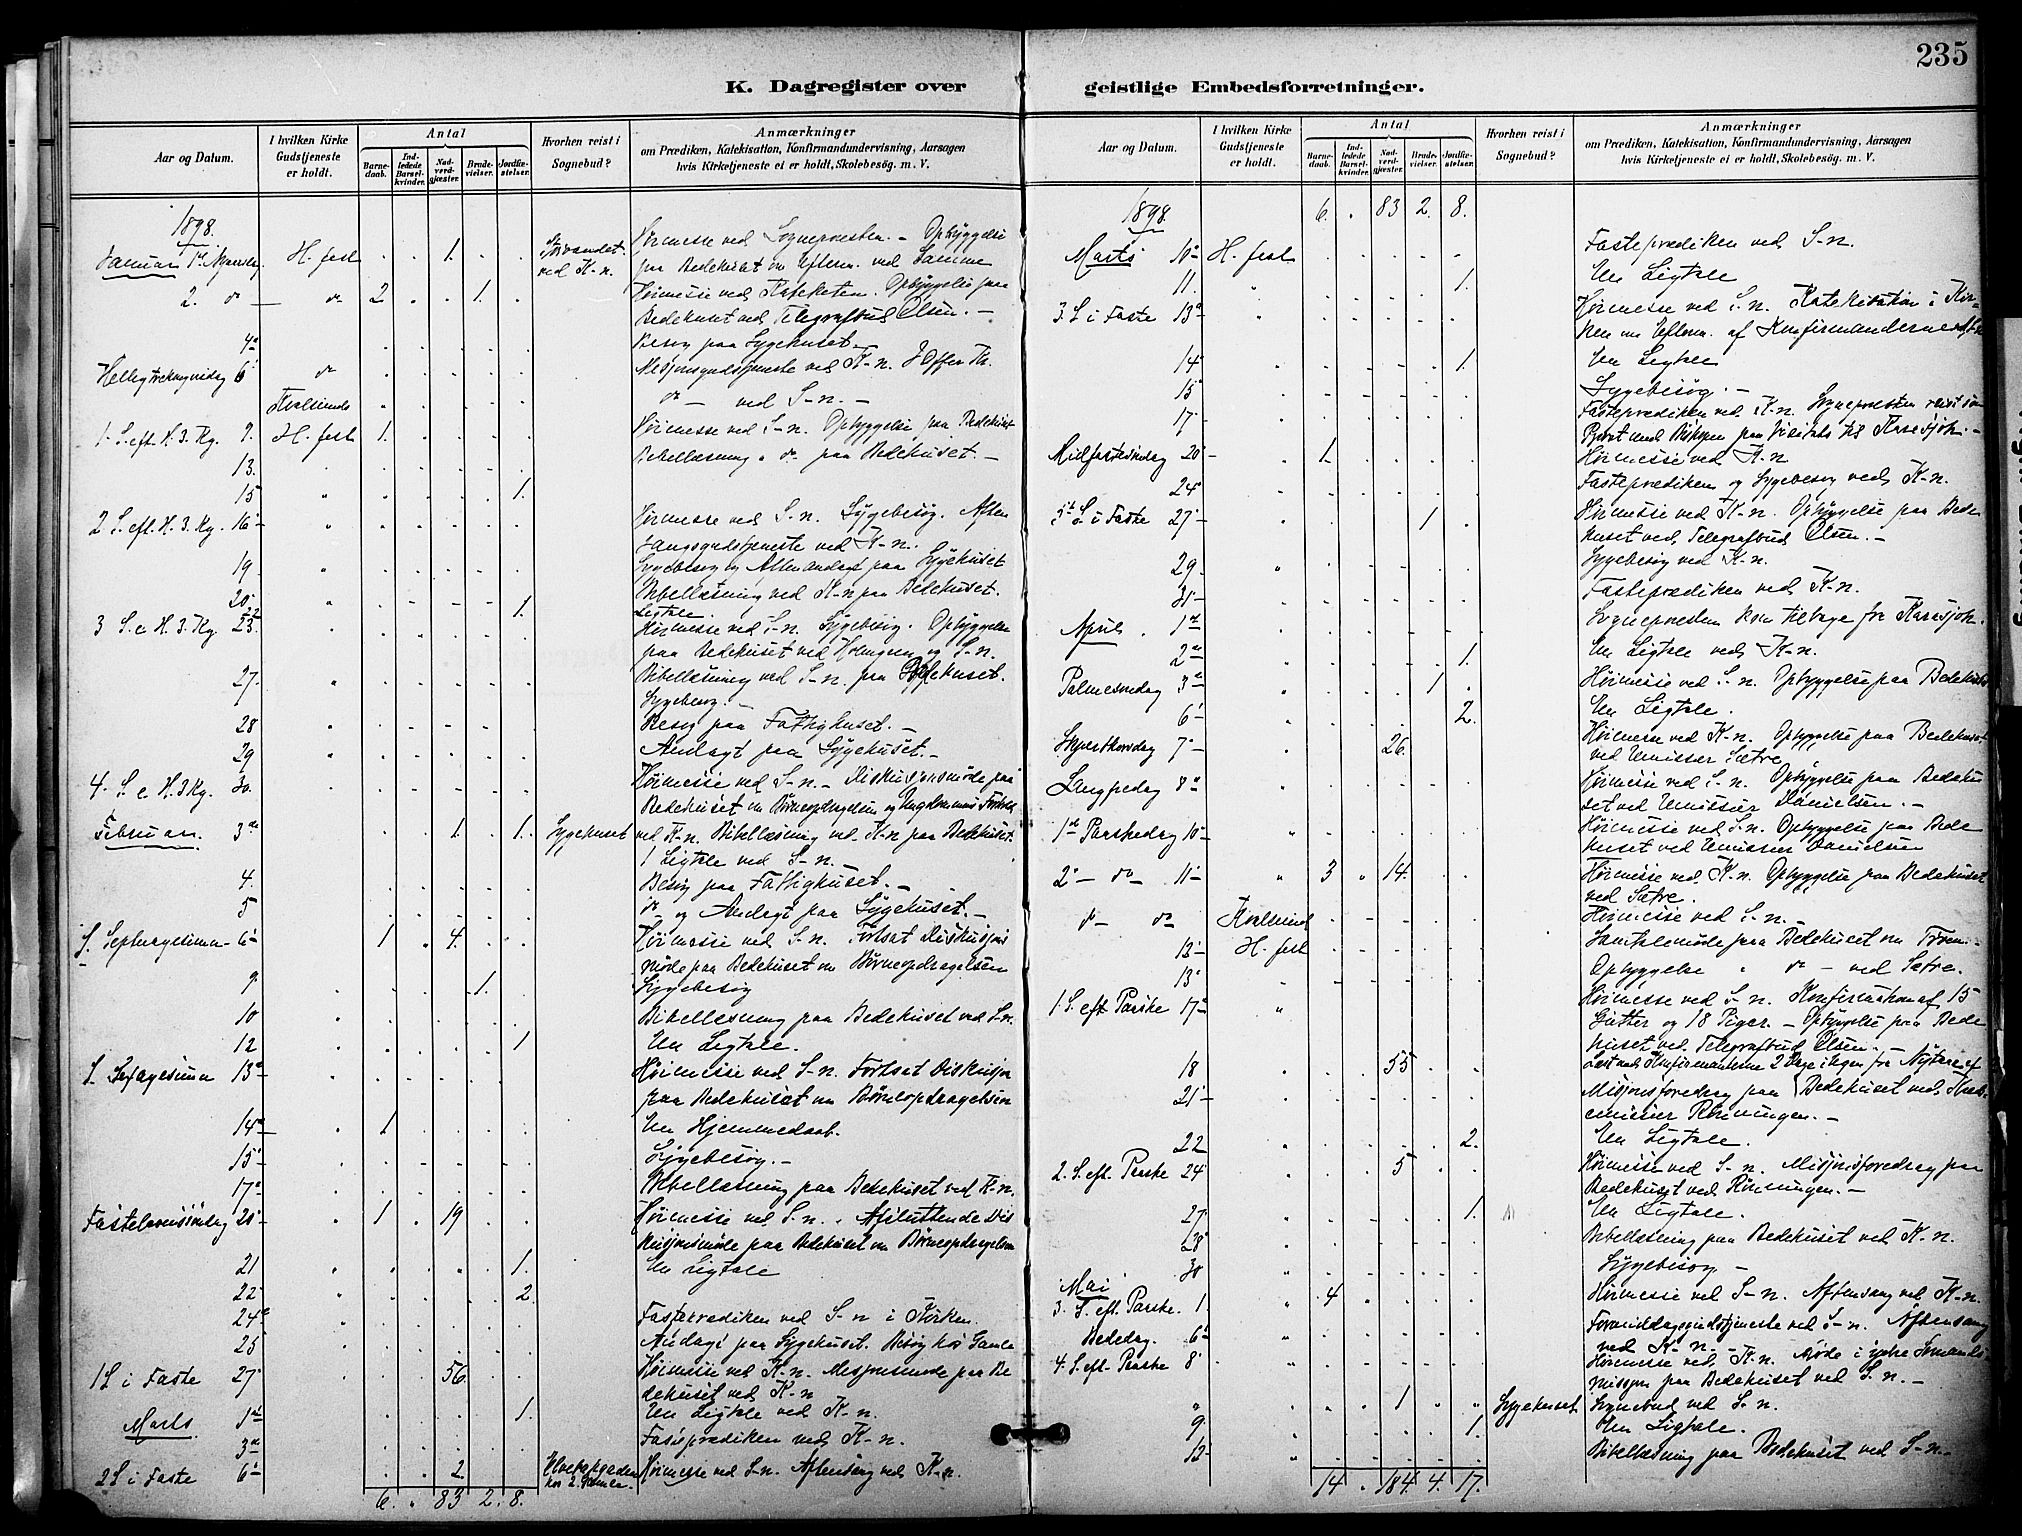 235
K. Dagregister over
geistlige Embedsforretninger.
Aar og Datum.
I hvilken Kirke Gudstjeneste er holdt.
Antal
Barnedaab.
Indledede Barselkvinder.
Nadverdgjæster.
Brudevielser.
Jordfæstelser.
Hvorhen reist i Sognebud?
Anmærkninger
om Prædiken, Katekisation, Konfirmandundervisning, Aarsagen
hvis Kirketjeneste ei er holdt, Skolebesög. m. V.
1898.
Januar 1ste H. fest . . 1. . . ved K-n. Höimesse ved Sognepresten. - Opbyggelse
paa Bedehuset om Efterm. ved Samme
2. do - do 2. . . 1. . Höimesse ved Kateketen. Opbyggelse paa
Bedehuset ved Telegrafbud Olsen. -
4de Besög paa Sygehuset.
6 do ved K-n.
do - ved S-n. -
1. S. eft. H. 3. Kg. 9. H. fest 1. Höimesse ved S-n. Opbyggelse paa Bedehuset
13. Bibellæsning " do paa Bedehuset. -
15 " 1.
2. S. eft. H. 3. Kg. 16 Höimesse ved S-n. Sygebesög. Aften
sangsgudstjeneste ved K-n.
19. " Sygebesög og Aftenandagt paa Sygehuset
20. " 1. Bibellæsning ved K-n paa Bedehuset.
Ligtale.
3 S. e H. 3. Kg. 23. Höimesse ved S-n. Sygebesög. Opbyggelse
paa Bedehuset ved Holmgren og S-n.
27. " Bibellæsning ved S-n. paa Bedehuset.
Sygebesög. -
28 Besög paa Fattighuset. -
29 Andagt paa Sygehuset. -
4. S. e H. 3 Kg. 30. Höimesse ved S-n. - Diskusjonsmöde paa
Bedehuset om Börneopdragelsen og
Februar. 3de 1. 1. Sygehuset ved K-n. Bibellæsning ved K-n paa Bedehuset.
1 Ligtale ved S-n. -
4. Besög paa Fattighuset. -
5 do og Andagt paa Sygehuset. -
S. Septuagesima 6 1 . 4. Höimesse ved S-n. Fortsat Diskusjons
möde paa Bedehuset om Börneopdragelsen
9. 1. Sygebesög
10 Bibellæsning paa Bedehuset ved S-n.
12 1 En Ligtale.
S. Sexagesima 13de Höimesse ved S-n. Fortsat Diskusjon
paa Bedehuset om Börneopdragelsen
14de 1 En Hjemmedaab.
15 Sygebesög. -
17de Bibellæsning paa Bedehuset ved K-n.
Fastelavnssöndag 20 1 . 19 Höimesse ved S-n. Afsluttende Dis
kusjonsmöde paa Bedehuset om Börneopdragelsen
21 1. En Ligtale
22 2.
24de Fasteprædiken ved S-n i Kirken.
25 Andagt paa Sygehuset. Besög hos Gamle
1 S i Faste 27 56. Höimesse ved K-n. Misjonsmöde paa Be
dehuset ved K-n
Marts. 1ste 1. En Ligtale ved K-n.
3de Fasteprædiken ved K-n.
2 S i Faste 6 2 Höimesse ved S-n. Aftensang ved K-n.
6. " 83 2. 8.
Aar og Datum.
I hvilken Kirke Gudstjeneste er holdt.
Antal
Barnedaab.
Indledede Barselkvinder.
Nadverdgjæster.
Brudevielser.
Jordfæstelser.
Hvorhen reist i Sognebud?
Anmærkninger
om Prædiken, Katekisation, Konfirmandundervisning, Aarsagen
hvis Kirketjeneste ei er holdt, Skolebesög. m. V.
1898. 6. " 83 2. 8.
Marts 10 H. fest Fasteprædiken ved S-n.
11. " 1. En Ligtale
3. S i Faste 13de " Höimesse ved S-n. Katekisation i Kir-
ken om Efterm. af Konfirmanderne
14 1. En Ligtale
15 Sygebesög. -
17 Fasteprædiken ved K-n. Sognepresten reist som
Provst med Biskopen paa Visitats til Karasjok. -
Midfastesöndag 20 1. Höimesse ved K-n
24 Fasteprædiken og Sygebesög ved K-n.
5te S. i Faste 27 1 Höimesse ved K-n. Opbyggelse paa Bede
huset ved Telegrafbud Olsen. -
29 " Sygebesög ved K-n.
31 Fasteprædiken ved K-n.
April. 1ste Sognepresten kom tilbage fra Karasjok.
2den 1. En Ligtale ved K-n.
Palmesöndag 3de 1 Höimesse ved S-n. Opbyggelse paa Bedehuset
6 2. En Ligtale.
Skjærtorsdag 7 26. Höimesse ved K-n. Opbyggelse paa Bedehuset
ved Emissær Sætre
Langfredag 8de Höimesse ved S-n. Opbyggelse paa Bedehu
set ved Emissær Danielsen. -
1ste Paaskedag 10 " Höimesse ved S-n. Opbyggelse paa Bede
huset ved Emissær Danielsen
2 - do - 11 " 3 " 14. Höimesse ved K-n. Opbyggelse paa Bedehuset
ved Sætre.
do - do Kvalsund Höimesse ved S-n. -
13 H. fest Samtalemöde paa Bedehuset om Troen. -
13 Opbyggelse " do - ved Sætre.
1. S. eft Paaske 17 " Höimesse ved S-n. Konfirmation af 15
Gutter og 18 Piger. - Opbyggelse paa Bede
huset ved Telegrafbud Olsen. -
18 55
21 Misjonsforedrag paa Bedehuset ved
emissær Rönningen. -
22 2. En Ligtale.
2. S. eft. Paaske 24 5 Höimesse ved S-n. Misjonsforedrag paa
Bedehuset ved Rönningen. -
27 1. En Ligtale.
28 Bibellæsning paa Bedehuset ved K-n.
30 Sygebesög -
Mai
3. S. eft. Paaske. 1. " 4 Höimesse ved S-n. Aftensang ved K-n.
Bededag. 6 Formiddagsgudstjeneste ved S-n. Aftensang
ved K-n. -
4. S. eft. Paaske 8 Höimesse ved K-n. Möde i indre Sömands
misjon paa Bedehuset ved S-n. -
" 1 " " Sygehuset Sognebud ved S-n.
9 1. En Ligtale.
12 Bibellæsning paa Bedehuset ved S-n.
14 " 184. 4. 17.